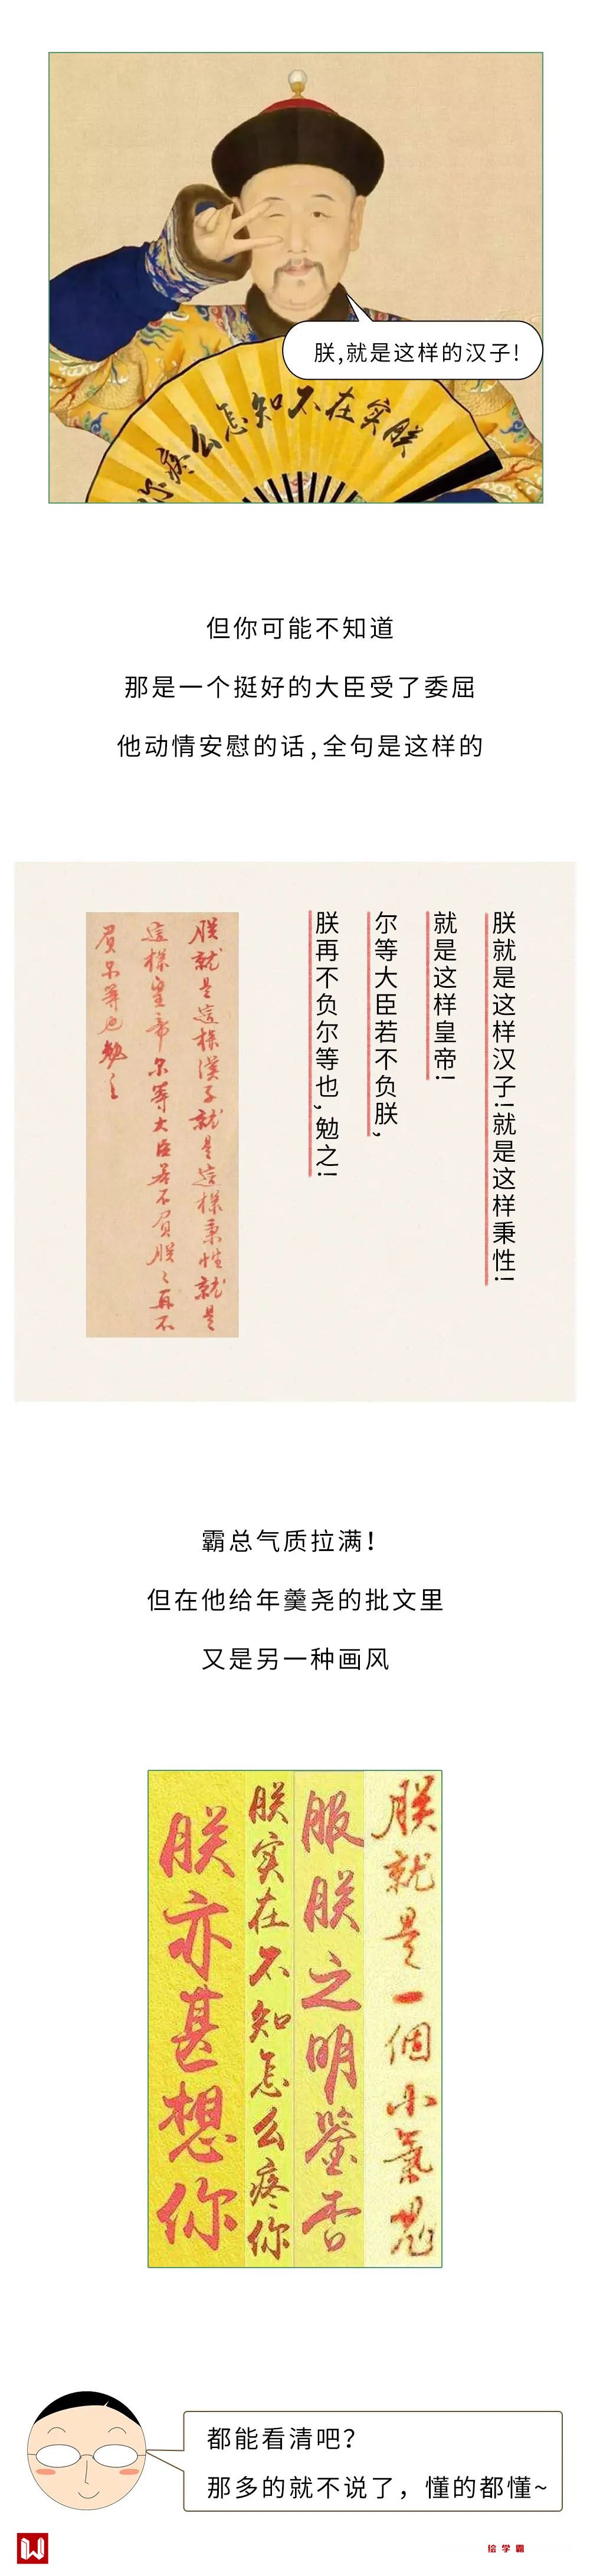 朕,就是这样的汉子!
朕实在不知怎么疼你
但你可能不知道
那是一个挺好的大臣受了委屈
他动情安慰的话,全句是这样的
朕就是这样汉子!就是这样秉性!
就是这样皇帝!
尔等大臣若不负朕,
朕再不负尔等也,勉之!
朕就是這樣漢子就是這樣秉性就是
這樣皇帝尔等大臣若不負朕朕再不
負尔等也勉之
霸总气质拉满!
但在他给年羹尧的批文里
又是另一种画风
朕就是一個小氣鬼
服朕之明鉴否
朕实在不知怎么疼你
朕亦甚想你
都能看清吧?
那多的就不说了，懂的都懂~
绘学霸